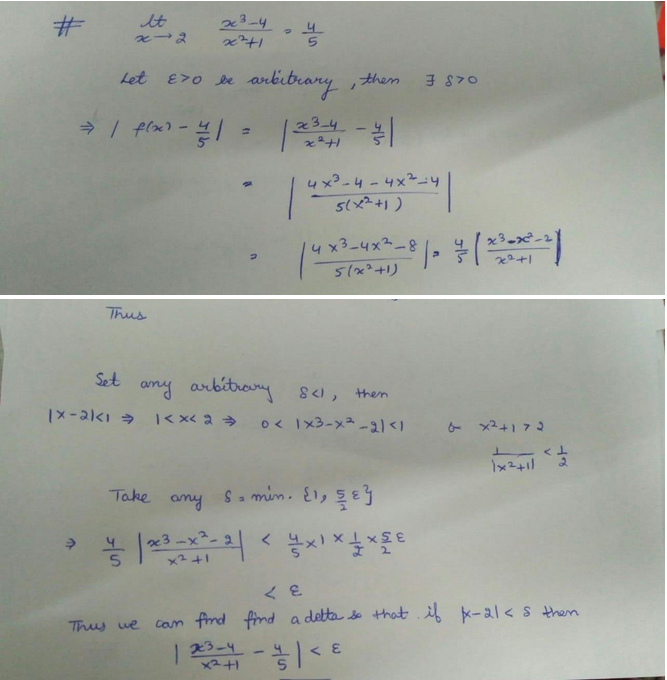 # lt x→2 x³-4/x²+1 = 4/5
Let ε>0 be arbitrary, then ∃ δ>0
⇒ | f(x) - 4/5 | = | x³-4/x²+1 - 4/5 |
= | 4x³-4-4x²-4/5(x²+1) |
= | 4x³-4x²-8/5(x²+1) | = 4/5 | x³-x²-2/x²+1 |
Thus
Set any arbitrary δ<1, then
|x-2|<1 ⇒ 1<x<2 ⇒ 0< |x3-x²-2|<1 & x²+1>2
1/|x²+1| < 1/2
Take any δ = min. {1, 5/2 ε}
⇒ 4/5 | x³-x²-2/x²+1 | < 4/5 x 1 x 1/2 x 5/2 ε
< ε
Thus we can find find a delta so that if |x-2| < δ then
| x³-4/x²+1 - 4/5 | < ε